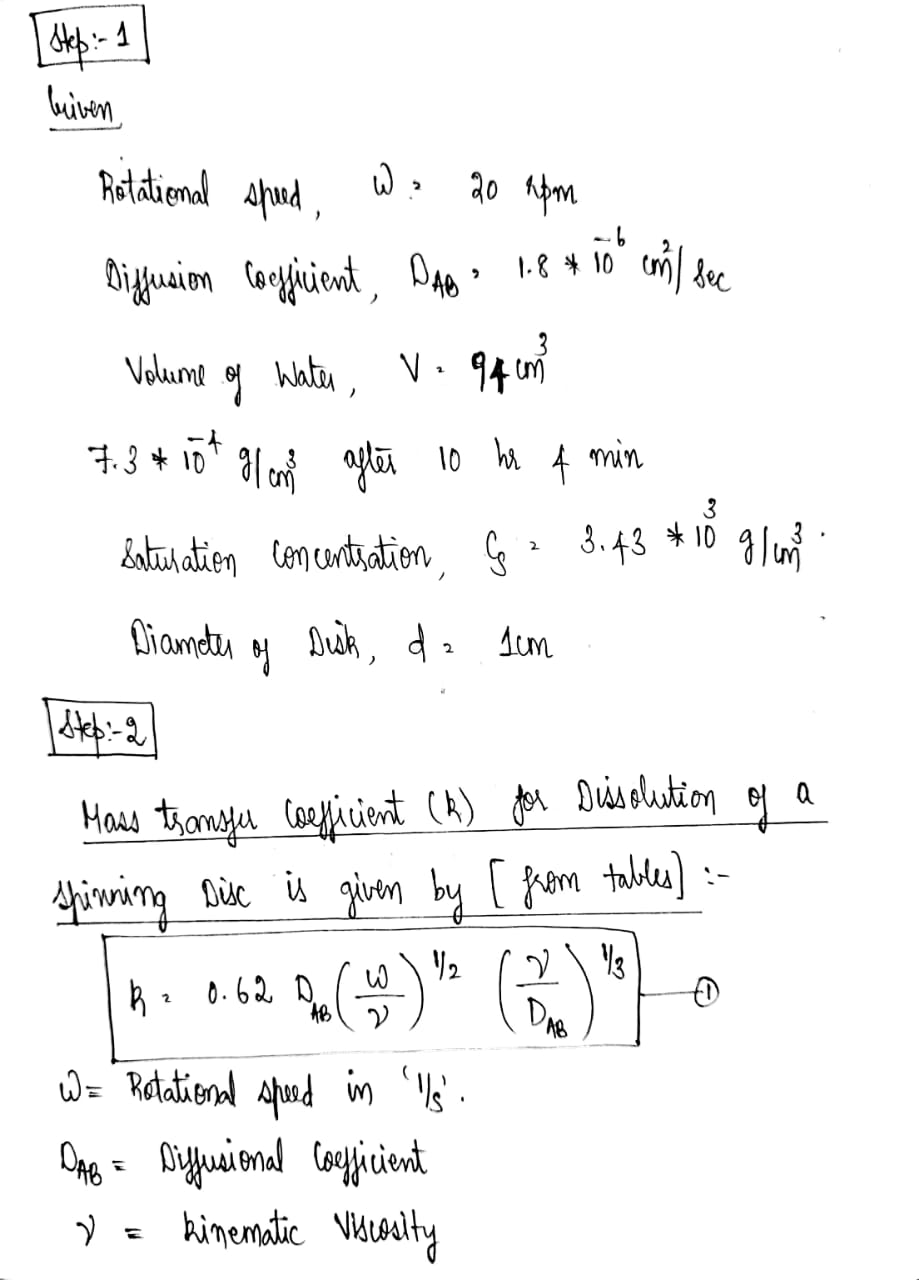 Step:- 1
Given
Rotational speed, ω = 20 rpm
Diffusion Coefficient, D_AB = 1.8 * 10^-6 cm²/sec
Volume of Water, V = 94 cm³
7.3 * 10^-4 g/cm³ after 10 hr 4 min
Saturation Concentration, C_s = 3.43 * 10³ g/cm³.
Diameter of Disk, d = 1cm
Step:-2
Mass transfer Coefficient (k) for Dissolution of a
Spinning Disc is given by [from tables] :-
k = 0.62 D_AB (ω/ν)^1/2 (ν/D_AB)^1/3 ①
ω = Rotational speed in '1/s'.
D_AB = Diffusional Coefficient
ν = kinematic Viscosity